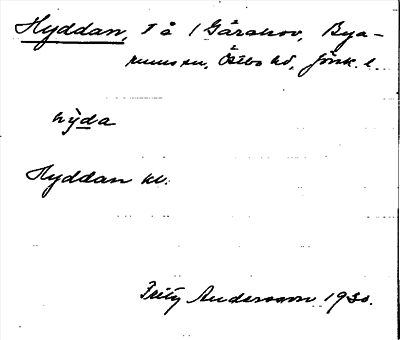 Hyddan, T å 1 Gårskov, Bya-
rums sn, Östbo hd, Jönk. l.
hy̆da
Hyddan kv.
Fritz Andersson 1930.